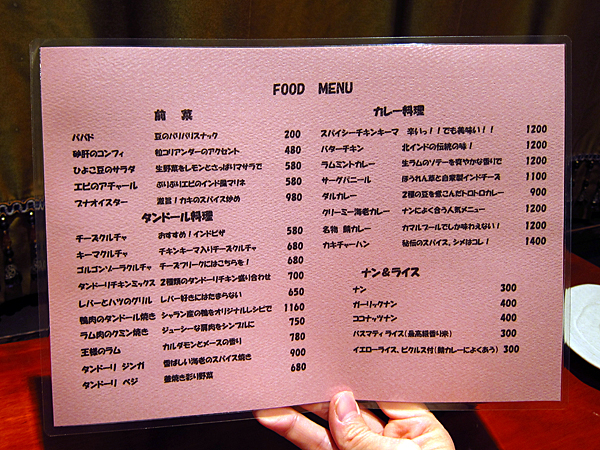 FOOD MENU
前 菜
パパド 豆のパリパリスナック 200
砂肝のコンフィ 粒コリアンダーのアクセント 480
ひよこ豆のサラダ 生野菜をレモンとさっぱりマサラで 580
エビのアチャール ぷりぷりエビのインド風マリネ 580
ブナオイスター 激旨！カキのスパイス炒め 980
タンドール料理
チーズクルチャ おすすめ！インドピザ 580
キーマクルチャ チキンキーマ入りチーズクルチャ 680
ゴルゴンゾーラクルチャ チーズフリークにはこちらを！ 680
タンドーリチキンミックス 2種類のタンドーリチキン盛り合わせ 700
レバーとハツのグリル レバー好きにはたまらない 650
鴨肉のタンドール焼き シャラン産の鴨をオリジナルレシピで 1160
ラム肉のクミン焼き ジューシーな肩肉をシンプルに 750
王様のラム カルダモンとメースの香り 780
タンドーリ ジンガ 香ばしい海老のスパイス焼き 900
タンドーリ ベジ 釜焼き彩り野菜 680
カレー料理
スパイシーチキンキーマ 辛いっ！！でも美味い！！ 1200
バターチキン 北インドの伝統の味！ 1200
ラムミントカレー 生ラムのソテーを爽やかな香りで 1200
サーグパニール ほうれん草と自家製インドチーズ 1100
ダルカレー 2種の豆を煮こんだトロトロカレー 900
クリーミー海老カレー ナンによく合う人気メニュー 1200
名物 鯖カレー カマルプールでしか味わえない！ 1200
カキチャーハン 秘伝のスパイス、シメはコレ！ 1400
ナン＆ライス
ナン 300
ガーリックナン 400
ココナッツナン 400
バスマティライス（最高級香り米） 300
イエローライス、ピクルス付（鯖カレーによくあう） 300